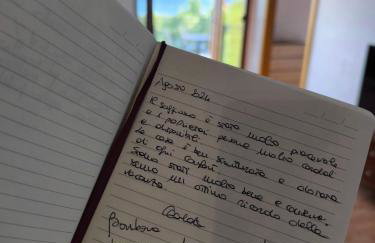 Agosto 2024
Il soggiorno è stato molto piacevole
e i proprietari persone molto cordiali
e disponibili.
La casa è ben strutturata e dotata
di ogni comfort.
Siamo stati molto bene e conserve-
remo un ottimo ricordo della
vacanza
Barbara